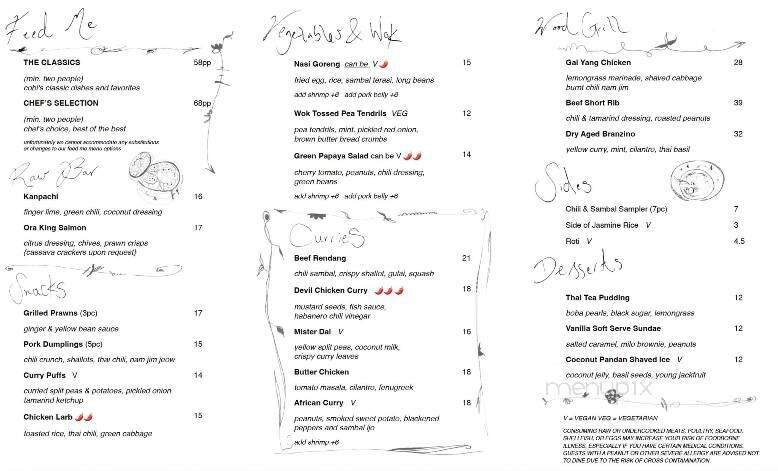 Feed Me
THE CLASSICS 58pp
(min. two people)
cobi's classic dishes and favorites
CHEF'S SELECTION 68pp
(min. two people)
chef's choice, best of the best
unfortunately we cannot accommodate any substitutions
or changes to our feed me menu options
Raw Bar
Kanpachi 16
finger lime, green chili, coconut dressing
Ora King Salmon 17
citrus dressing, chives, prawn crisps
(cassava crackers upon request)
Snacks
Grilled Prawns (3pc) 17
ginger & yellow bean sauce
Pork Dumplings (5pc) 15
chili crunch, shallots, thai chili, nam jim jeow
Curry Puffs V 14
curried split peas & potatoes, pickled onion
tamarind ketchup
Chicken Larb 🌶️🌶️ 15
toasted rice, thai chili, green cabbage
Vegetables & Wok
Nasi Goreng can be V 🌶️ 15
fried egg, rice, sambal terasi, long beans
add shrimp +6 add pork belly +6
Wok Tossed Pea Tendrils VEG 12
pea tendrils, mint, pickled red onion,
brown butter bread crumbs
Green Papaya Salad can be V 🌶️🌶️ 14
cherry tomato, peanuts, chili dressing,
green beans
add shrimp +6 add pork belly +6
Curries
Beef Rendang 21
chili sambal, crispy shallot, gulai, squash
Devil Chicken Curry 🌶️🌶️🌶️ 18
mustard seeds, fish sauce,
habanero chili vinegar
Mister Dal V 16
yellow split peas, coconut milk,
crispy curry leaves
Butter Chicken 18
tomato masala, cilantro, fenugreek
African Curry V 18
peanuts, smoked sweet potato, blackened
peppers and sambal ijo
add shrimp +6
Wood Grill
Gai Yang Chicken 28
lemongrass marinade, shaved cabbage
burnt chili nam jim
Beef Short Rib 39
chili & tamarind dressing, roasted peanuts
Dry Aged Branzino 32
yellow curry, mint, cilantro, thai basil
Sides
Chili & Sambal Sampler (7pc) 7
Side of Jasmine Rice V 3
Roti V 4.5
Desserts
Thai Tea Pudding 12
boba pearls, black sugar, lemongrass
Vanilla Soft Serve Sundae 12
salted caramel, milo brownie, peanuts
Coconut Pandan Shaved Ice V 12
coconut jelly, basil seeds, young jackfruit
menupix
V = VEGAN VEG = VEGETARIAN
CONSUMING RAW OR UNDERCOOKED MEATS, POULTRY, SEAFOOD,
SHELLFISH, OR EGGS MAY INCREASE YOUR RISK OF FOODBORNE
ILLNESS, ESPECIALLY IF YOU HAVE CERTAIN MEDICAL CONDITIONS.
GUESTS WITH A PEANUT OR OTHER SEVERE ALLERGY ARE ADVISED NOT
TO DINE DUE TO THE RISK OF CROSS CONTAMINATION.